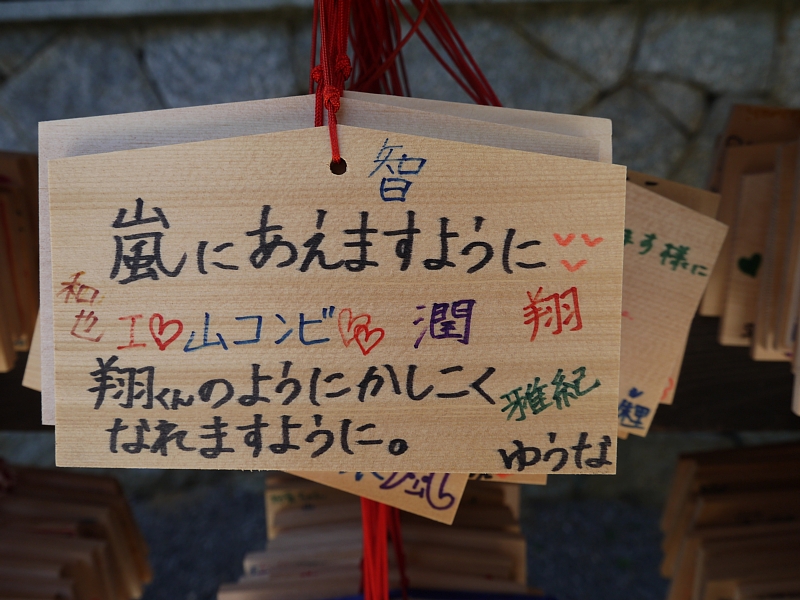 智
嵐にあえますように
和也
I♡山コンビ
潤
翔
翔くんのようにかしこく
雅紀
なれますように。
ゆうな
ます様に
嵐